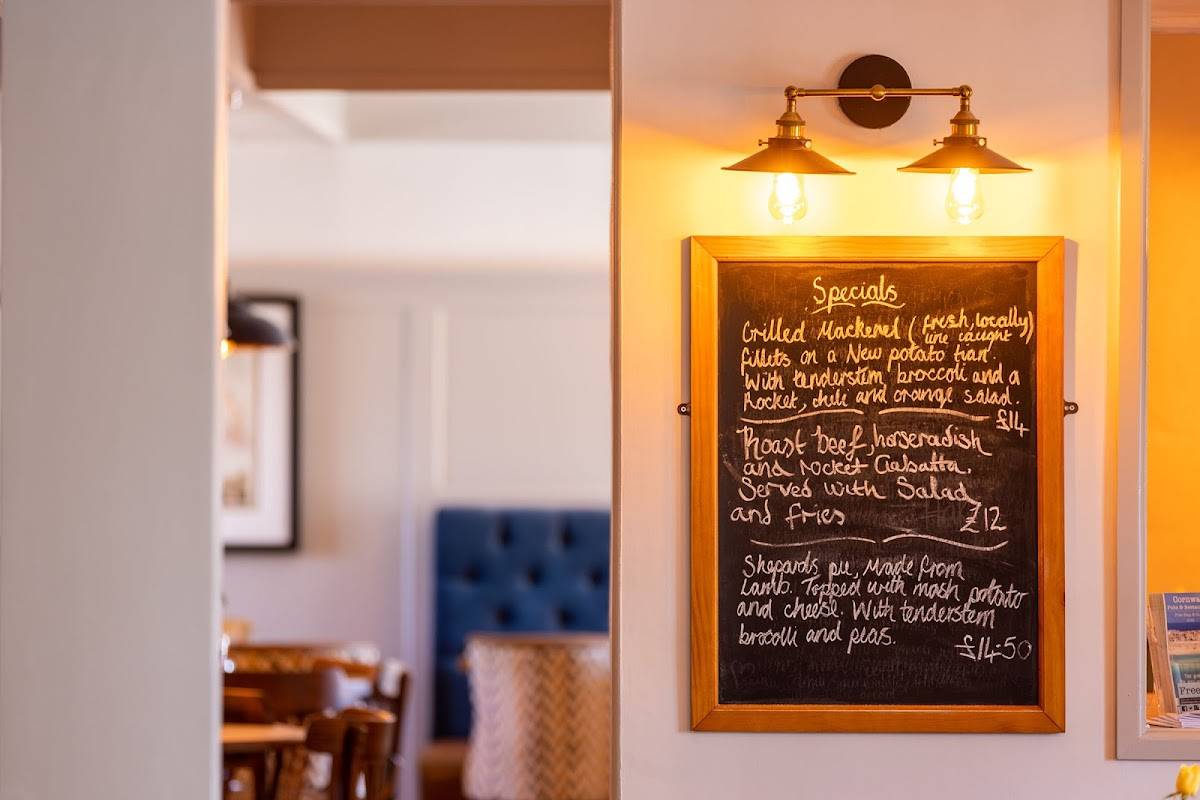 Specials
Grilled Mackerel (fresh, locally)
line caught
fillets on a New potato
With tenderstem broccoli and a
Rocket, chili and orange salad.
£14
Roast beef, horseradish
and rocket Ciabatta.
Served with Salad
and fries £12
Shepards pie, Made from
Lamb. Topped with mash potato
and cheese. With tenderstem
brocolli and peas.
£14-50
Cornwa
Free